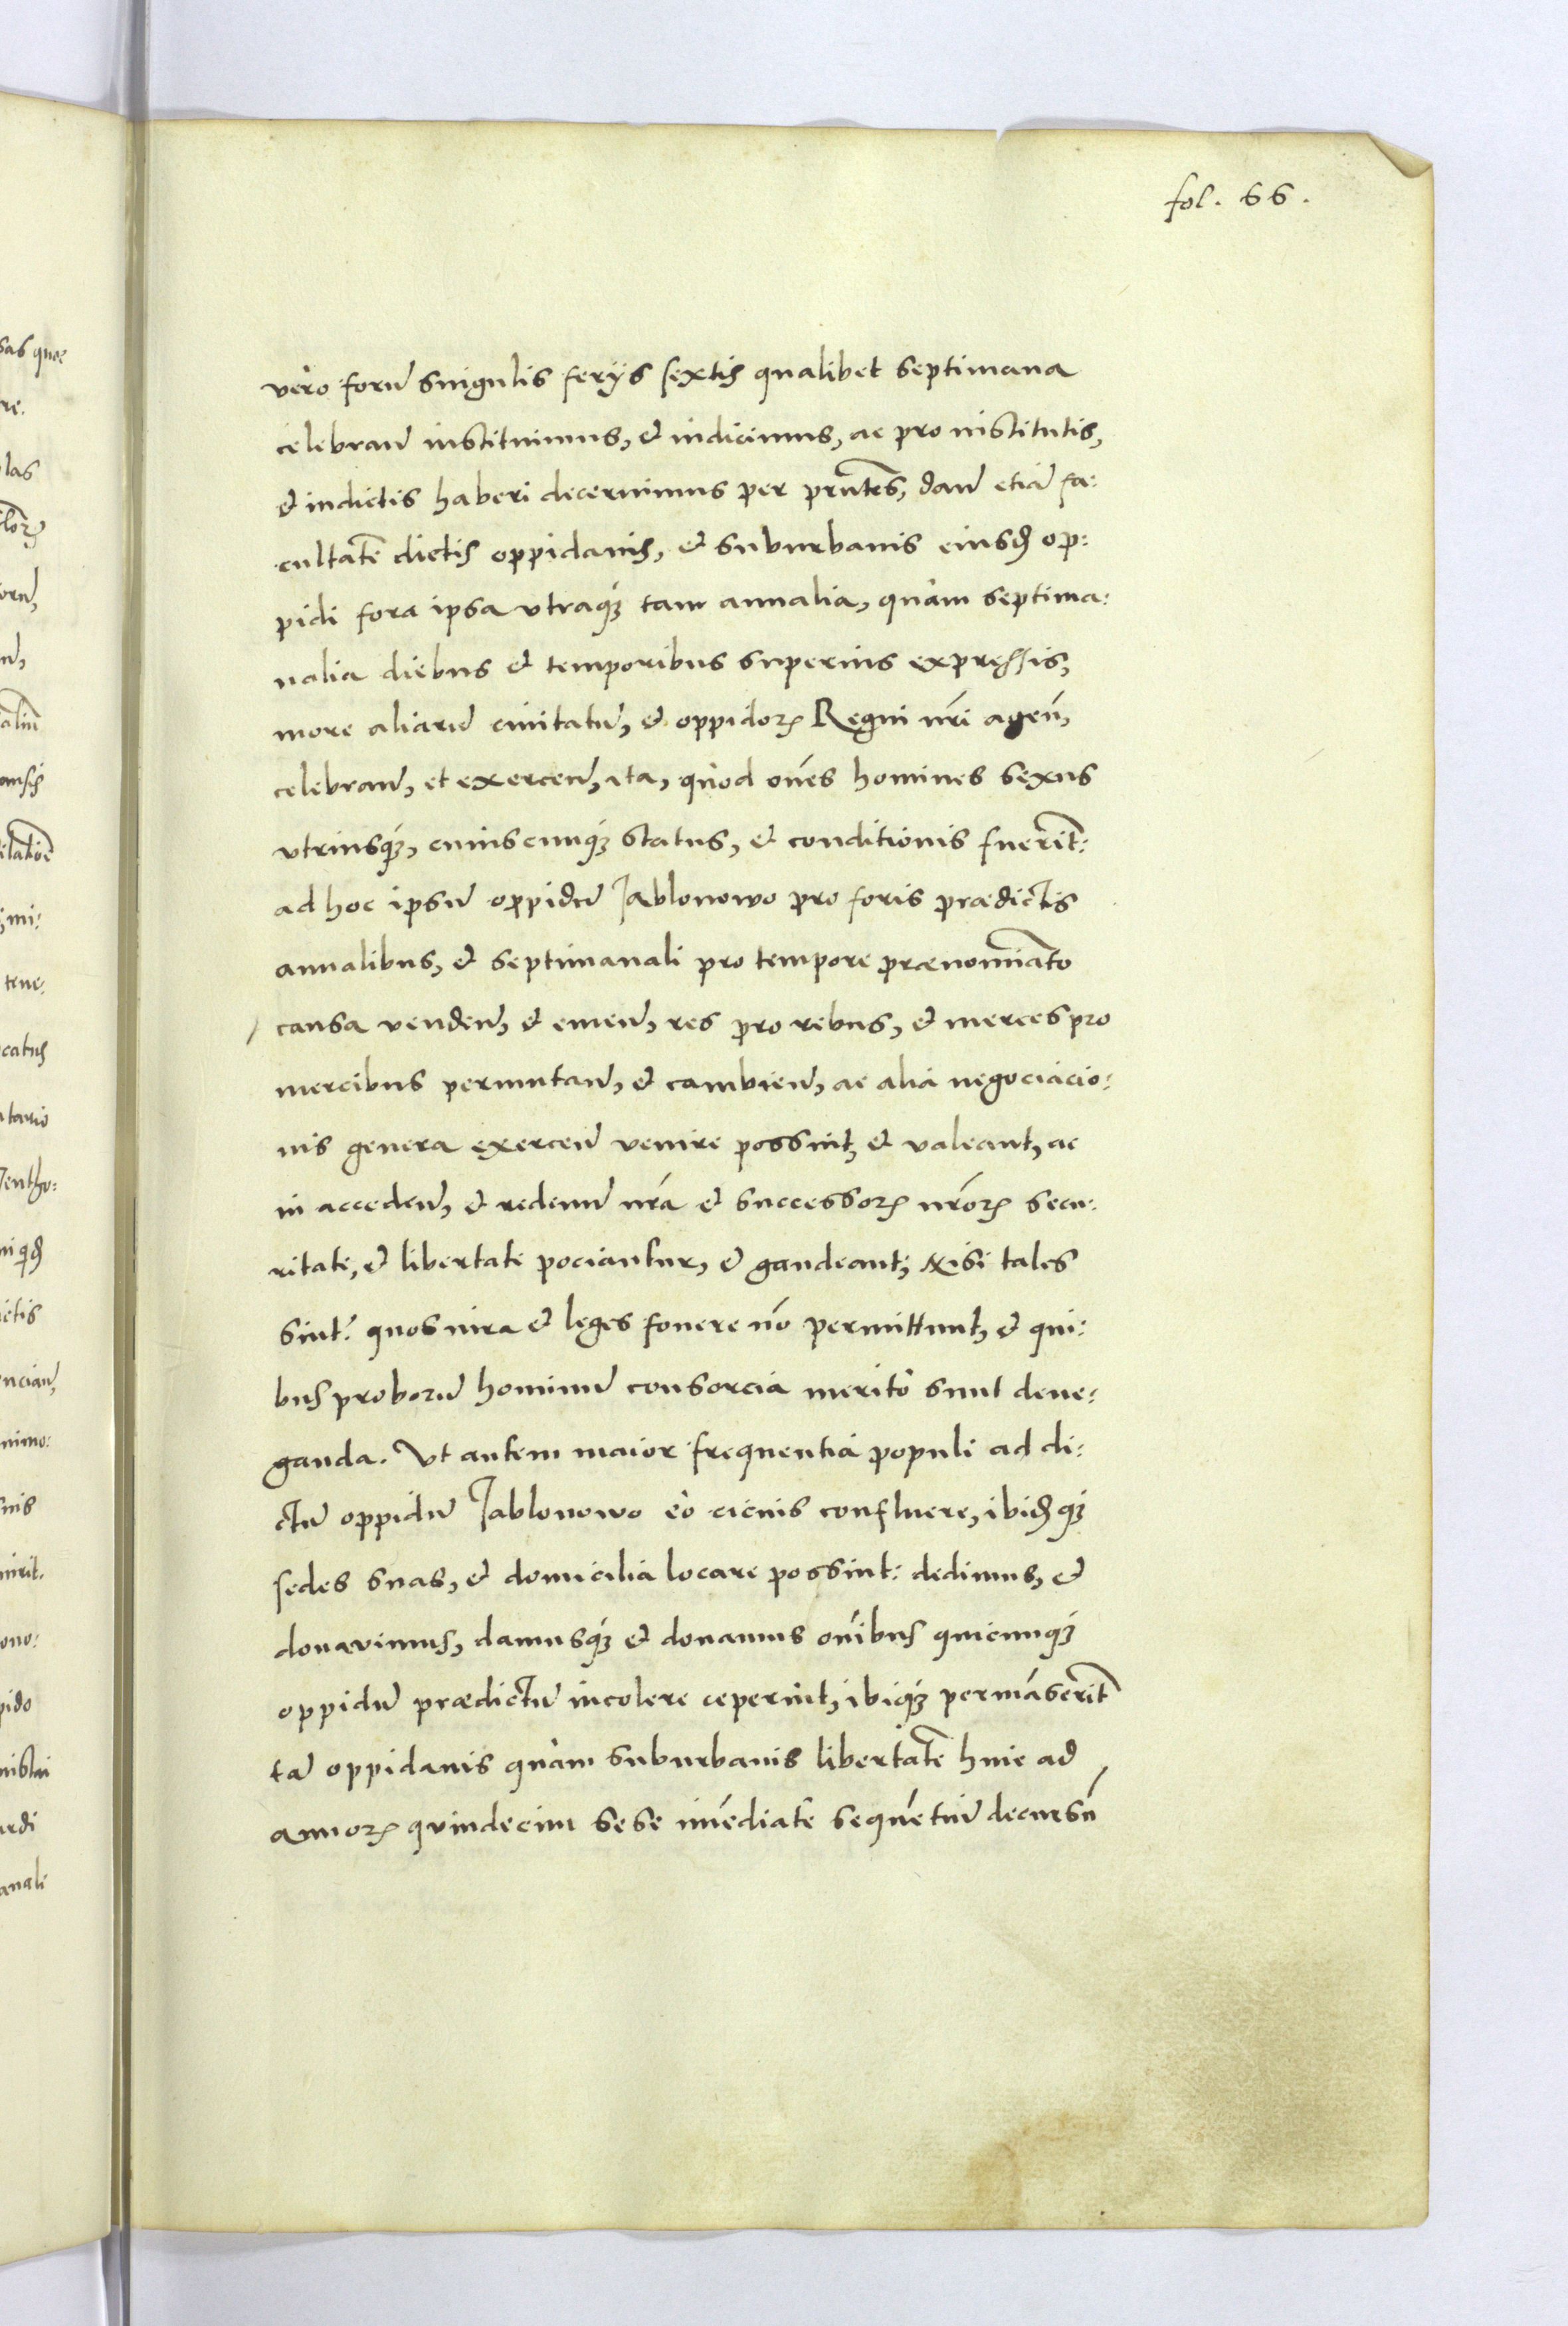 fol. 66.
vero forū singulis ferijs sextis qualibet septimana
celebrañ instituimus, et indicimus, ac pro institutis,
et indictis haberi decernimus per pr̃ntes, dañ etiā fa:
cultatē dictis oppidanis, et suburbanis eiusdꝫ op:
pidi fora ipsa vtraqꝫ tam annalia, quàm septima:
nalia diebus et temporibus superius expressis,
more aliarū ciuitatū, et oppidoꝝ Regni nr̃i ageñ,
celebrañ, et exerceñ, ita, quòd oẽs homines sexus
vtriusqꝫ, cuiuscunqꝫ status, et conditionis fuerīt:
ad hoc ipsum oppidū Jablonowo pro foris prædictis
annalibus, et septimanali pro tempore prænomīato
causa vendeñ, et emeñ, res pro rebus, et merces pro
mercibus permutañ, et cambieñ, ac alia negociacio:
nis genera exerceñ venire possint, et valeant, ac
in accedeñ, et redeuñ nr̃a et successoꝝ nr̃oꝝ secu:
ritate, et libertate pociantur, et gaudeant, Nisi tales
sint: quos iura et leges fouere nō permittunt, et qui:
bus proborū hominū consorcia meritò sunt dene:
ganda. Vt autem maior frequentia populi ad di:
ctū oppidū Jablonowo eò cicius confluere, ibidꝫqꝫ
sedes suas, et domicilia locare possint: dedimus, et
donauimus, damusqꝫ et donamus oībus quicunqꝫ
oppidū prædictū incolere ceperint, ibiqꝫ permāserīt
tā oppidanis quàm suburbanis libertatē hinc ad
annoꝝ quindecim sese īmediate sequētiū decursū